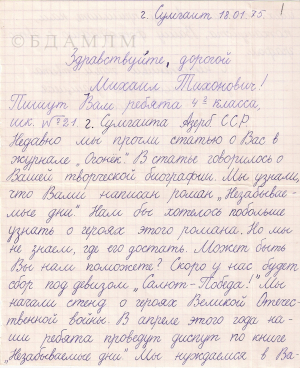 г. Сумгаит 18.01.75.
1
©БДАМЛМ
Здравствуйте, дорогой
Михаил Тихонович!
Пишут Вам ребята 4 з класса,
шк. №21 г. Сумгаита Азерб ССР.
Недавно мы прочли статью о Вас в
журнале „Огонёк". В статье говорилось о
Вашей творческой биографии. Мы узнали,
что Вами написан роман „Незабывае-
мые дни". Нам бы хотелось побольше
узнать о героях этого романа. Но мы
не знаем, где его достать. Может быть
Вы нам поможете? Скоро у нас будет
сбор под девизом „Салют-Победа!" Мы
начали стенд о героях Великой Отечес-
твенной войны. В апреле этого года на-
ши ребята проведут диспут по книге
„Незабываемые дни". Мы нуждаемся в Ва-